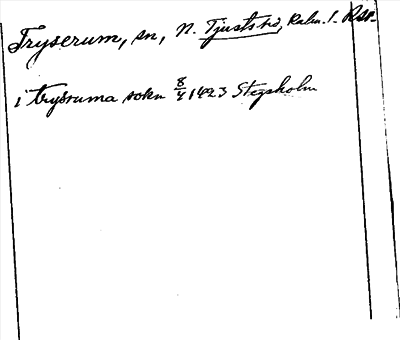 Tryserum, sn, N. Tjusts hd, Kalm. l. Rsr.
i trysruma sokn 8/4 1423 Stegsholm